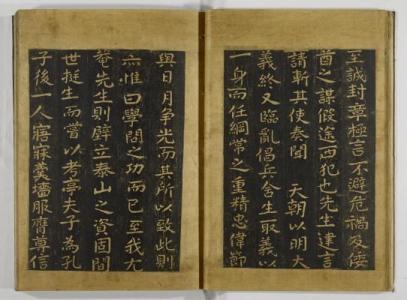 至誠封章極言不避危禍及倭
酋之謀假途西犯也先生建言
請斬其使奏聞　天朝以明大
義終又臨亂倡兵舍生取義以
一身而任綱常之重精忠偉節
與日月争光而其所以致此則
亦惟曰學問之功而已至我尤
菴先生則壁立泰山之資固間
世挺生而嘗以考亭夫子為孔
子後一人寤寐羹墻服膺尊信